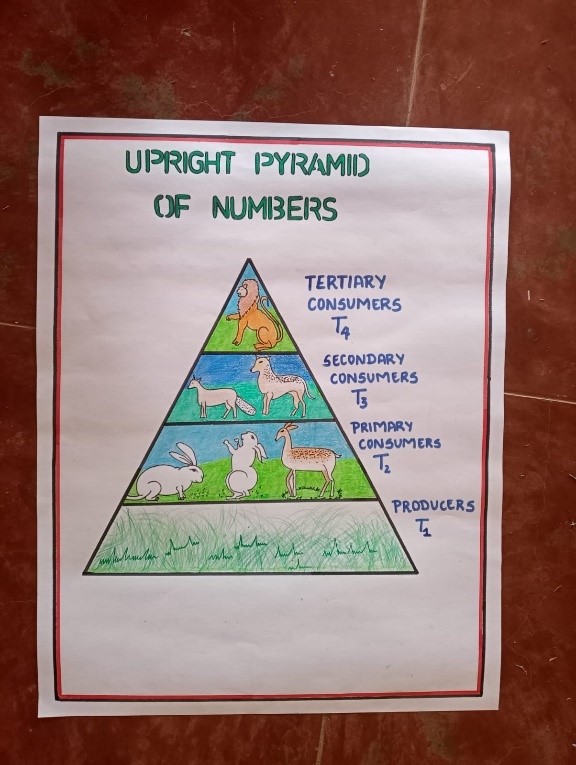 UPRIGHT PYRAMID
OF NUMBERS
TERTIARY
CONSUMERS
T4
SECONDARY
CONSUMERS
T3
PRIMARY
CONSUMERS
T2
PRODUCERS
T1